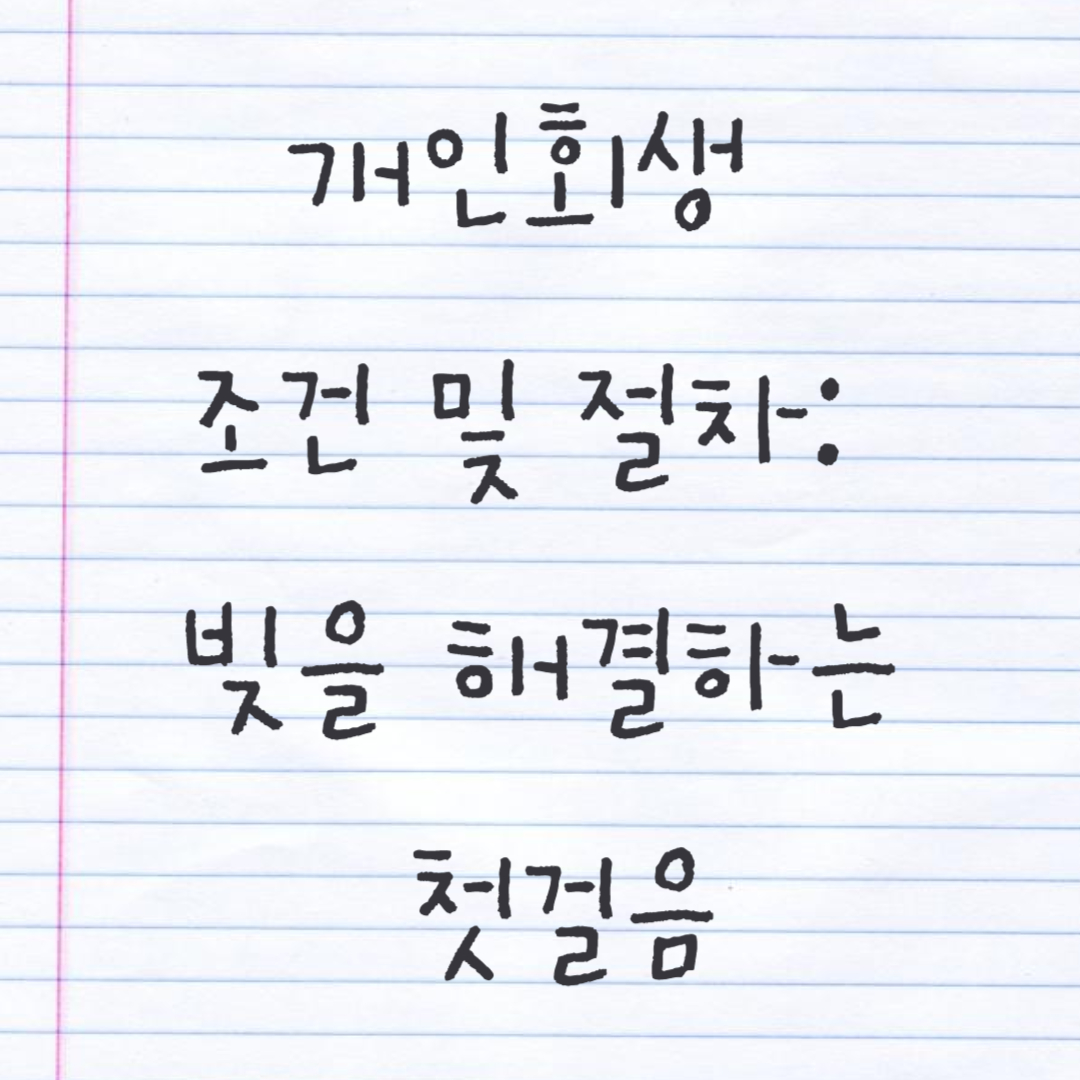 개인회생
조건 및 절차:
빚을 해결하는
첫걸음